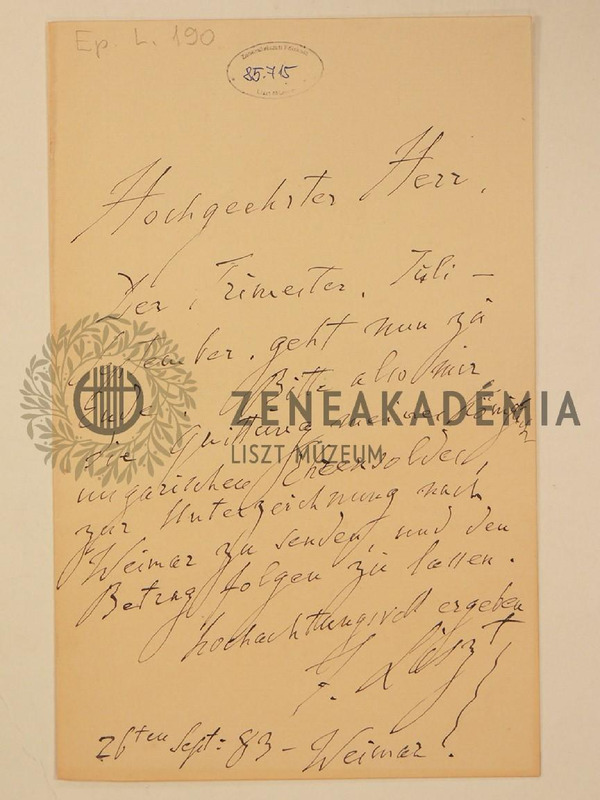 Ep. L. 190
Zeneakadémia
85.715
Liszt Múzeum
Hochgeehrter Herr,
Der Trimester, Juli –
September, geht nun zu
Ende. Bitte also mir
die Quittung meines
ungarischen Ehrensoldes,
zur Unterzeichnung nach
Weimar zu senden, und den
Betrag folgen zu lassen.
hochachtungsvoll ergeben
F. Liszt
26ten Sept: 83 – Weimar.
ZENEAKADÉMIA
LISZT MÚZEUM